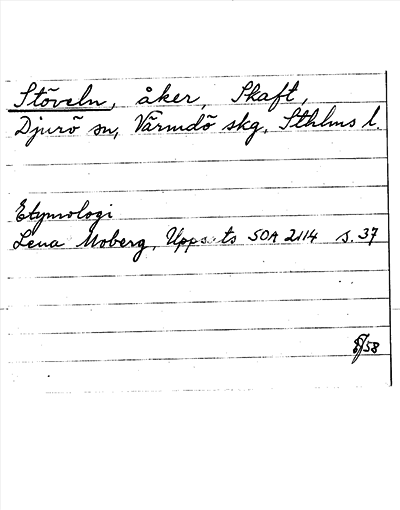 Stöveln, åker, Skaft,
Djurö sn, Värmdö skg, Sthlms l.
Etymologi
Lena Moberg, Uppsats SOA 2114 s. 37
8/58